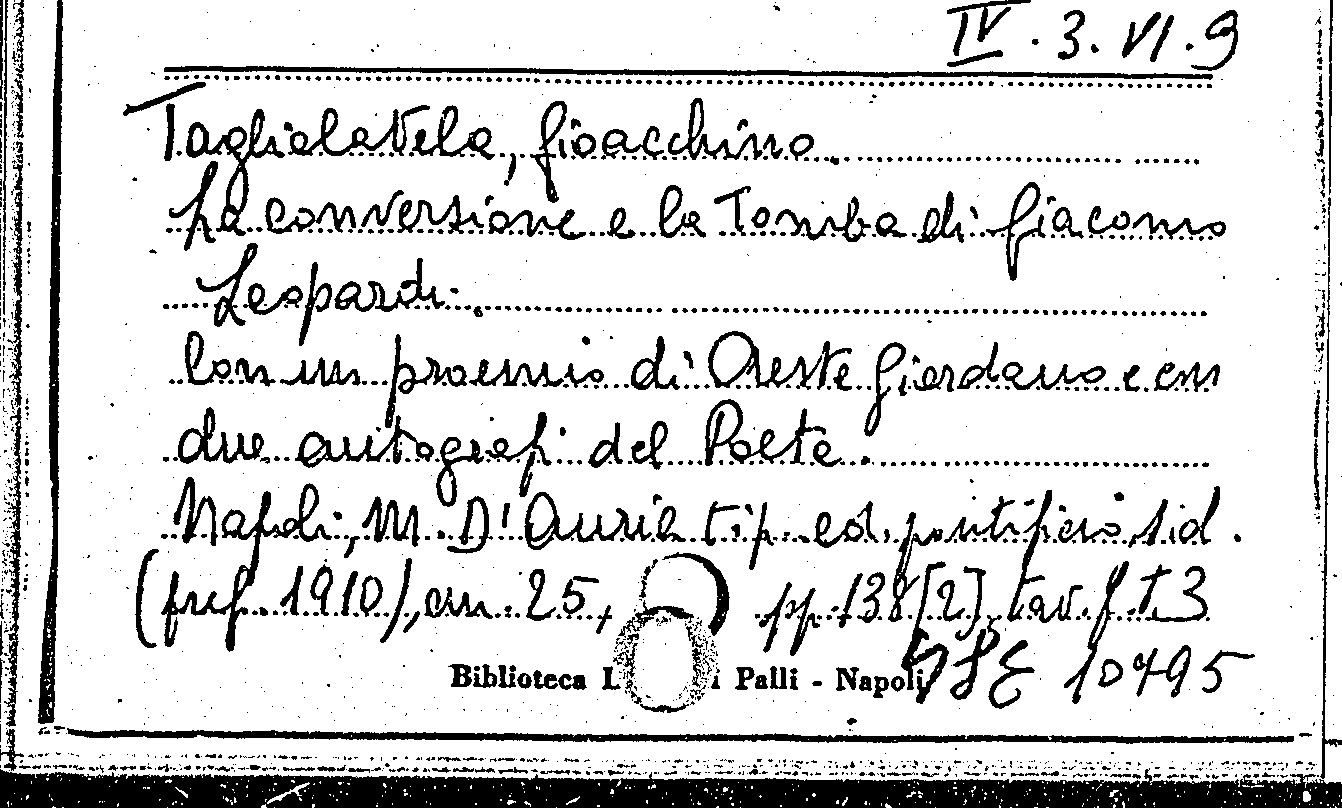 IV.3.VI.9
Taglialatela, Gioacchino.
La conversione e la Tomba di Giacomo
Leopardi.
Con un proemio di Oreste Giordano e con
due autografi del Poeta.
Napoli, M. D'Auria tip. ed. pontificio, s.d.
(pref. 1910), cm. 25, pp. 138 [2], tav. f. t. 3
Biblioteca L Palli - Napoli 10795